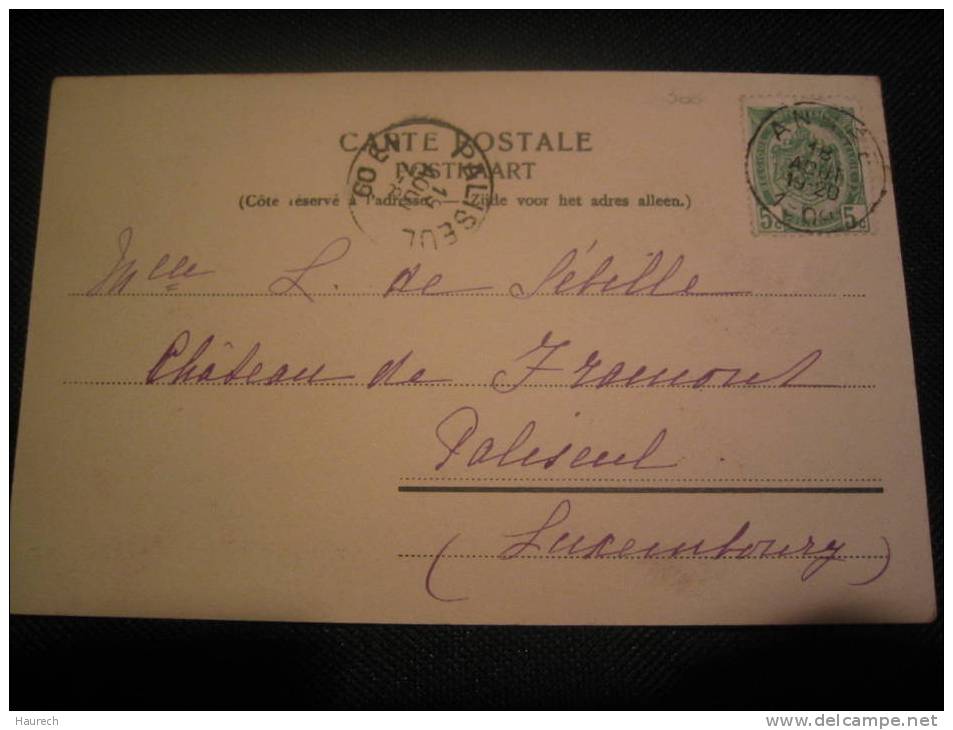 CARTE POSTALE
POSTKAART
(Côté réservé à l'adresse. — Zijde voor het adres alleen.)
PALISEUL
19
AOUT
09
18
AOUT
19-20
5 c 5 c
Mlle L. de Sébille
Château de Framont
Paliseul.
(Luxembourg)
Haurech
www.delcampe.net